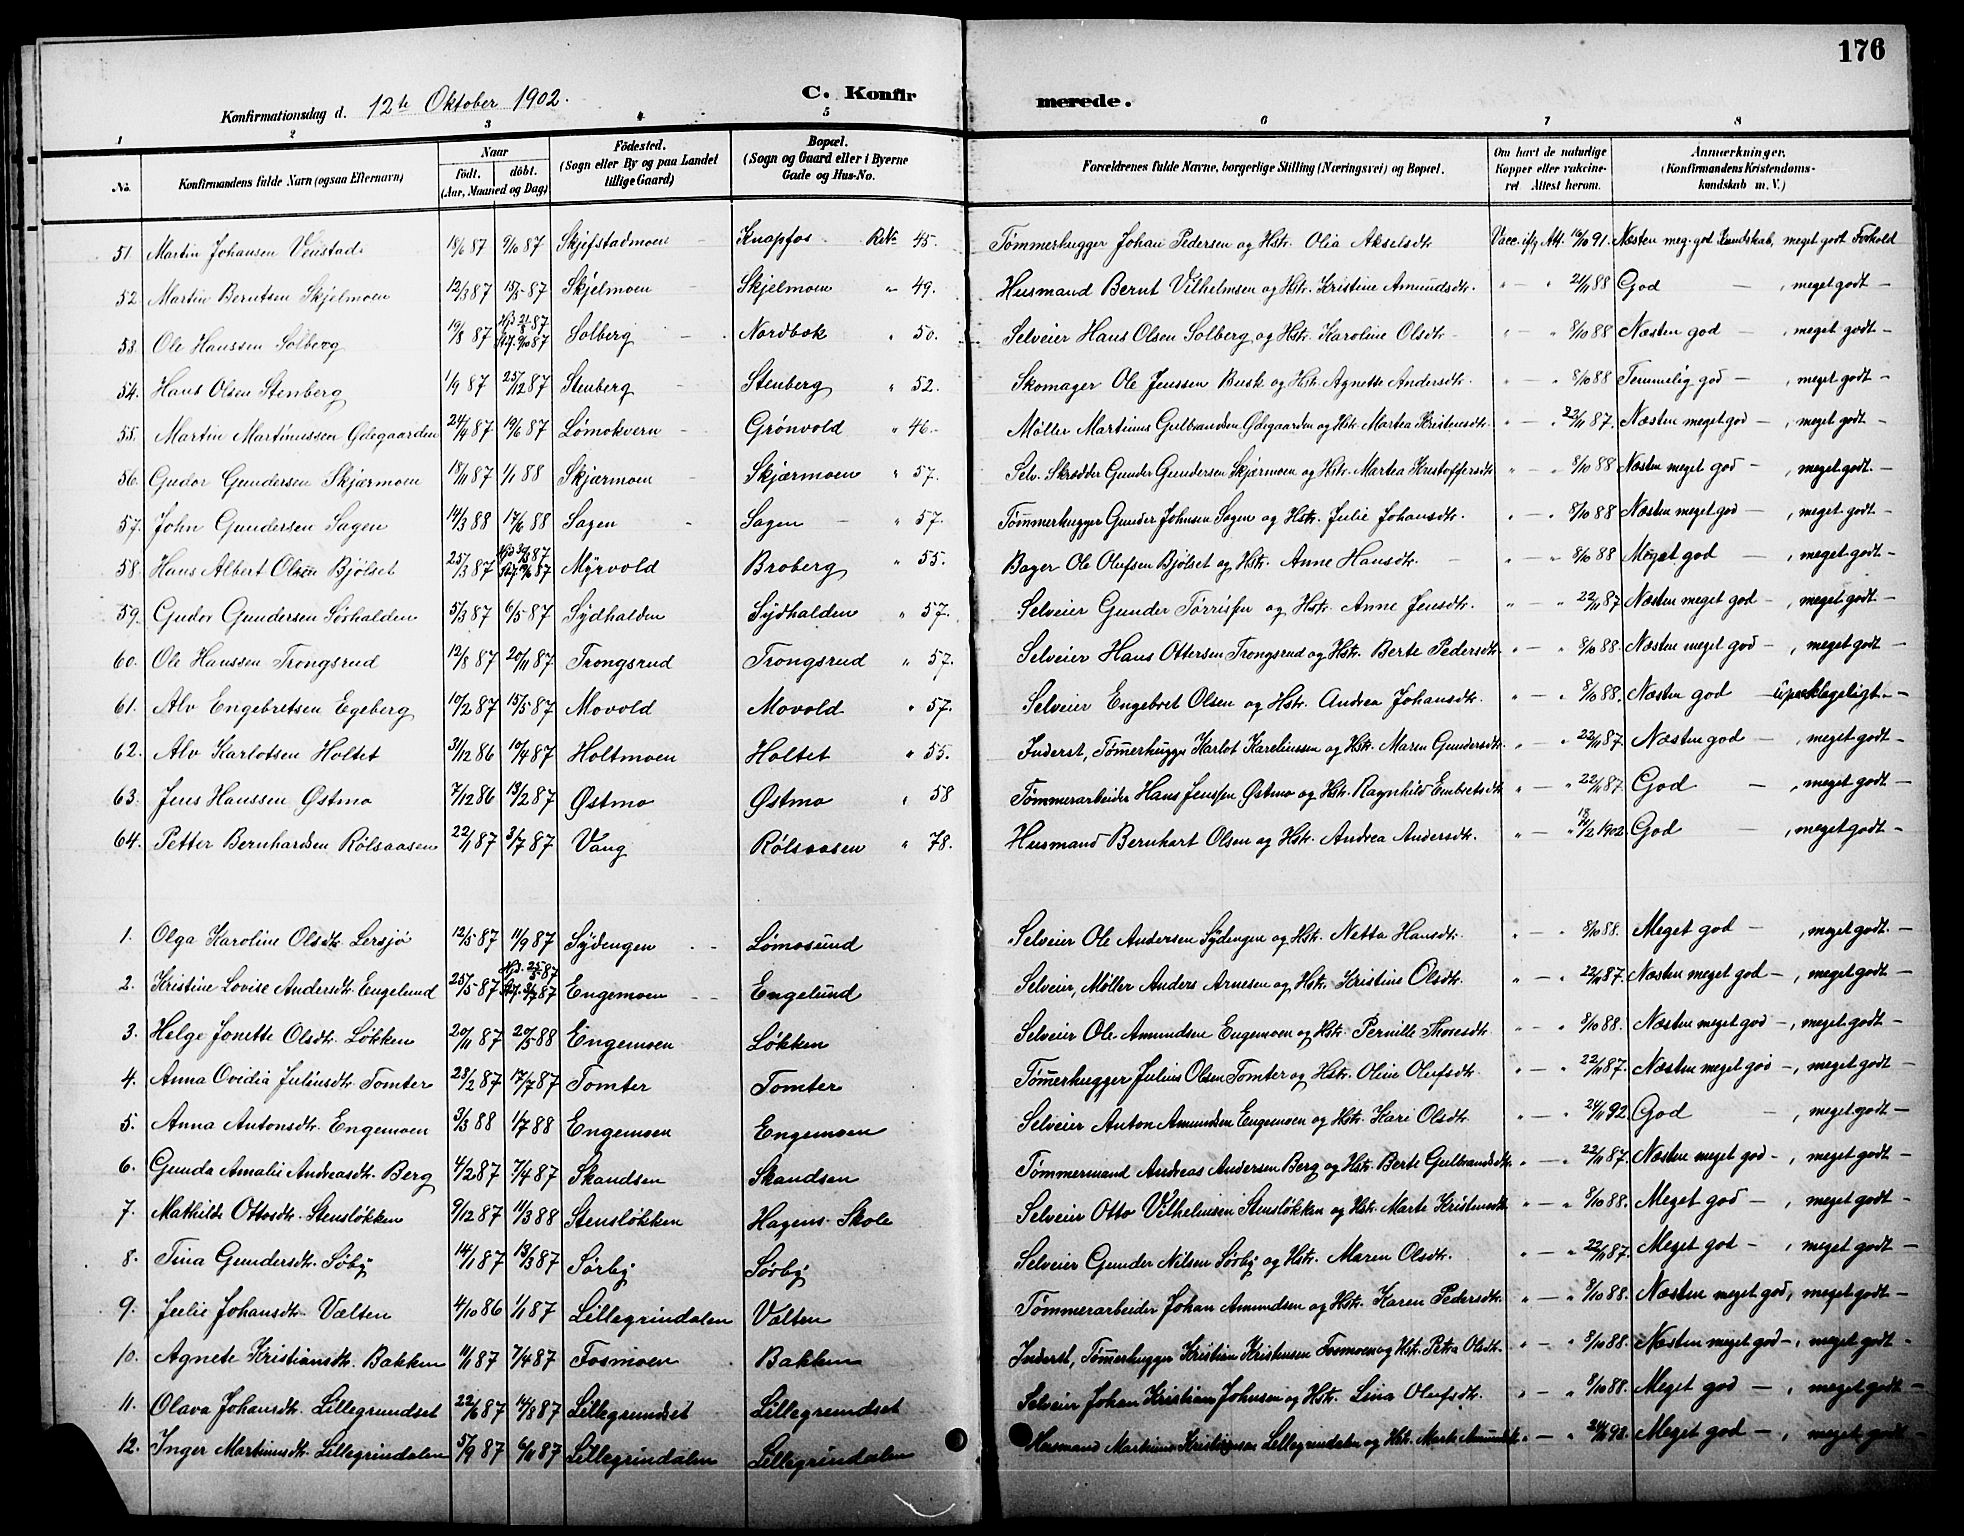 176
C. Konfir merede.
Konfirmationsdag d. 12te Oktober 1902.
1 2 3 4 5 6 7 8
No. Konfirmandens fulde Navn (ogsaa Efternavn) Naar født. døbt. (Aar, Maaned og Dag) Fødested. (Sogn eller By og paa Landet tillige Gaard) Bopæl. (Sogn og Gaard eller i Byerne Gade og Hus-No. Forældrenes fulde Navne, borgerlige Stilling (Næringsvei) og Bopæl. Om havt de naturlige Kopper eller vakcineret Attest herom. Anmærkninger, (Konfirmandens Kristendomskundskab m. V.)
51. Martin Johansen Venstad 18/6 87 9/10 87 Skjefstadmoen Knapfos 45. Tømmerhugger Johan Pedersen og Hstr. Olia Akselsdtr. Vacc. ifg. Att. 16/10 91. Næsten meg. god Kundskab, meget godt Forhold
52. Martin Berntsen Skjelmoen 12/3 87 15/5 87 Skjelmoen Skjelmoen " 49. Husmand Bernt Vilhelmsen og Hstr. Kristine Amundsdtr. " — " 21/11 88 God —, meget godt —
53. Ole Hanssen Solberg 19/8 87 Solberg Nordbæk " 50. Selveier Hans Olsen Solberg og Hstr. Karoline Olsdtr. " — " 8/10 88 Næsten god —, meget godt —
54. Hans Olsen Stenberg 1/9 87 25/12 87 Stenberg Stenberg " 52. Skomager Ole Jenssen Busk og Hstr. Agnethe Andersdtr. " — " 8/10 88 Temmelig god —, meget godt —
55. Martin Martinussen Ødegaarden 24/4 87 19/6 87 Lømokvern Grønvold " 46. Møller Martinus Gulbrandsen Ødegaarden og Hstr. Martea Kristensdtr. " — " 22/11 87. Næsten meget god —, meget godt —
56. Gudor Gundersen Skjærmoen 18/11 87 1/1 88 Skjærmoen Skjærmoen " 57. Selv. Skrædder Gunder Gundersen Skjærmoen og Hstr. Martea Kristoffersdtr. " — " 8/10 88 Næsten meget god —, meget godt —
57. John Gundersen Sagen 14/3 88 17/6 88 Sagen Sagen " 57. Tømmerhugger Gunder Johnsen Sagen og Hstr. Julie Johansdtr. " — " 8/10 88 Næsten meget god —, meget godt —
58. Hans Albert Olsen Bjølset 25/3 87 Myrvold Broberg " 55. Bager Ole Olufsen Bjølset og Hstr. Anne Hansdtr. " — " 8/10 88 Meget god —, meget godt —
59. Gudor Gundersen Sørhalden 5/3 87 6/5 87 Sydhalden Sydhalden " 57. Selveier Gunder Tørrisen og Hstr. Anne Jensdtr. " — " 22/11 87. Næsten meget god —, meget godt —
60. Ole Hanssen Trongsrud 12/8 87 20/11 87 Trongsrud Trongsrud " 57. Selveier Hans Ottersen Trongsrud og Hstr. Berte Pedersdtr. " — " 8/10 88. Næsten meget god —, meget godt —
61. Alv Engebretsen Egeberg 10/2 87 15/5 87 Movold Movold " 57. Selveier Engebret Olsen og Hstr. Andrea Johansdtr. " — " 8/10 88. Næsten god — upaaklageligt —
62. Alv Karlotsen Holtet 31/12 86 10/4 87 Holtmoen Holtet " 55. Inderst, Tømmerhugger Karlot Kareliussen og Hstr. Maren Gundersdtr. " — " 22/11 87. Næsten god —, meget godt —
63. Jens Hanssen Østmo 7/12 86 13/2 87 Østmo Østmo " 58 Tømmerarbeider Hans Jenssen Østmo og Hstr. Ragnhild Embretsdtr. " — " 22/11 87. God —, meget godt —
64. Petter Bernhardsen Rølsaasen 22/1 87 3/7 87 Vang Rølsaasen " 78. Husmand Bernhart Olsen og Hstr. Andrea Andersdtr. " — " 1902. God —, meget godt —
1. Olga Karoline Olsdtr. Lersjø 12/5 87 11/9 87 Sydengen Lømosund Selveier Ole Andersen Sydengen og Hstr. Netta Hansdtr. " — " 8/10 88. Meget god —, meget godt —
2. Kristine Lovise Andersdtr. Engelund 25/5 87 Engemoen Engelund Selveier, Møller Anders Arnesen og Hstr. Kristine Olsdtr. " — " 22/11 87. Næsten meget god —, meget godt —
3. Helge Jonette Olsdtr. Løkken 20/11 87 20/5 88 Engemoen Løkken Selveier Ole Amundsen Engemoen og Hstr. Pernille Thoresdtr. " — " 8/10 88. Næsten meget god —, meget godt —
4. Anna Ovidia Juliusdtr. Tomter 23/2 87 17/7 87 Tomter Tomter Tømmerhugger Julius Olsen Tomter og Hstr. Oline Olufsdtr. " — " 22/11 87. Næsten meget god —, meget godt —
5. Anna Antonsdtr. Engemoen 3/3 88 1/7 88 Engemoen Engemoen Selveier Anton Amundsen Engemoen og Hstr. Kari Olsdtr. " — " 24/11 92. God —, meget godt —
6. Gunda Amalie Andreasdtr. Berg 4/2 87 7/4 87 Skandsen Skandsen Tømmermand Andreas Andersen Berg og Hstr. Berte Gulbrandsdtr. " — " 22/11 87. Næsten meget god —, meget godt —
7. Mathilde Ottosdtr. Stensløkken 9/12 87 11/3 88 Stensløkken Hagens Skole Selveier Otto Vilhelmsen Stensløkken og Hstr. Marte Kristensdtr. " — " 8/10 88. Meget god —, meget godt —
8. Tina Gundersdtr. Søby 14/1 87 13/3 87 Sørby Sørby Selveier Gunder Nilsen Sørby og Hstr. Maren Olsdtr. " — " 22/11 87. Meget god —, meget godt —
9. Julie Johansdtr. Vælten 4/10 86 1/1 87 Lillegrindalen Vælten Tømmerarbeider Johan Amundsen og Hstr. Karen Pedersdtr. " — " 8/10 88. Næsten meget god, meget godt —
10. Agnete Kristiansdtr. Bakken 11/1 87 7/4 87 Fosmoen Bakken Inderst, Tømmerhugger Kristian Kristensen Fosmoen og Hstr. Petra Olsdtr. " — " 8/10 88. Næsten meget god —, meget godt —
11. Olava Johansdtr. Lillegrundset 22/6 87 14/8 87 Lillegrundset Lillegrundset Selveier Johan Kristian Johnsen og Hstr. Lina Olufsdtr. " — " 8/10 88. Meget god —, meget godt —
12. Inger Martinusdtr. Lillegrindalen 5/9 87 6/11 87 Lillegrindalen Lillegrindalen Husmand Martinus Kristiansen Lillegrindalen og Hstr. " — " Meget god —, meget godt